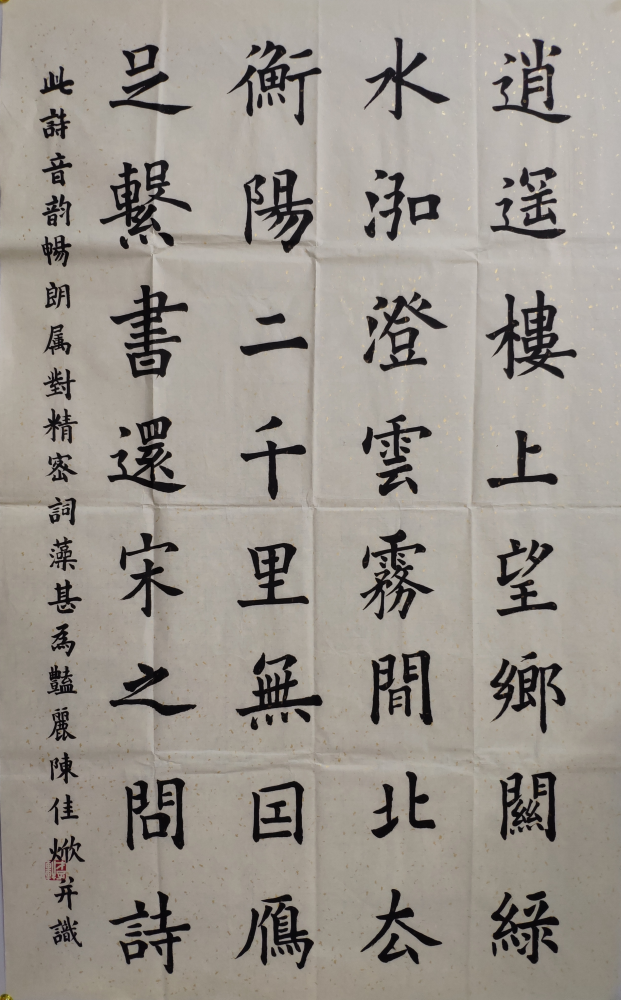 逍遥樓上望鄉關綠
水泓澄雲霧間北厺
衡陽二千里無囙鴈
足繫書還宋之問詩
此詩音韵暢朗属對精密詞藻甚為豔麗陳佳焮并識